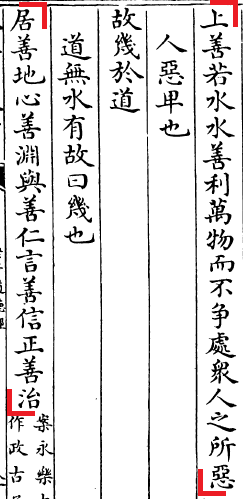 上善若水水善利萬物而不争處衆人之所惡
人惡卑也
故幾於道
道無水有故曰幾也
居善地心善淵與善仁言善信正善治
案永樂
作政古